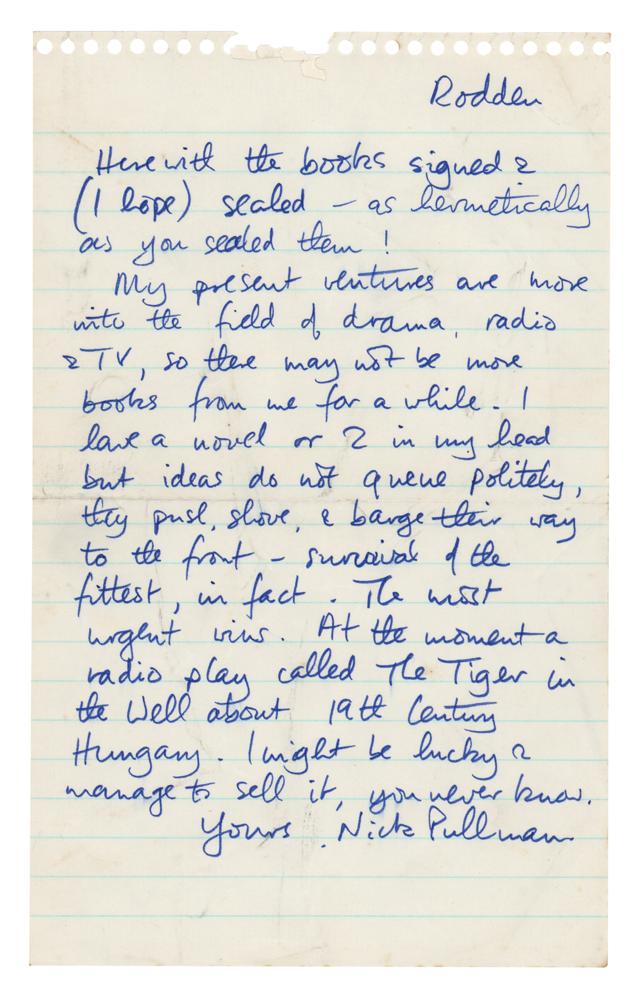 Rodden
Herewith the books signed &
(I hope) sealed – as hermetically
as you sealed them!
My present ventures are more
into the field of drama, radio
& TV, so there may not be more
books from me for a while. I
have a novel or 2 in my head
but ideas do not queue politely,
they push, shove, & barge their way
to the front – survival of the
fittest, in fact. The most
urgent wins. At the moment a
radio play called The Tiger in
the Well about 19th Century
Hungary. I might be lucky &
manage to sell it, you never know.
Yours, Nick Pullman